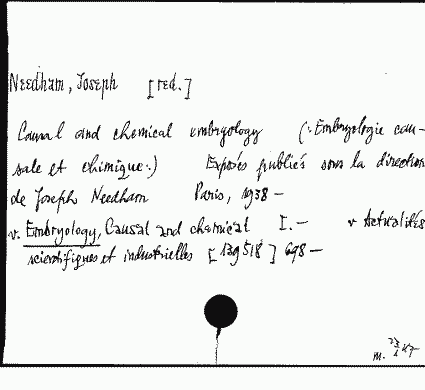 Needham, Joseph [red.]
Causal and chemical embryology (: Embryologie cau-
sale et chimique :) Exposés publiés sous la direction
de Joseph Needham Paris, 1938 –
v. Embryology, Causal and chemical I. – v Actualités
scientifiques et industrielles [139518] 698 –
m.